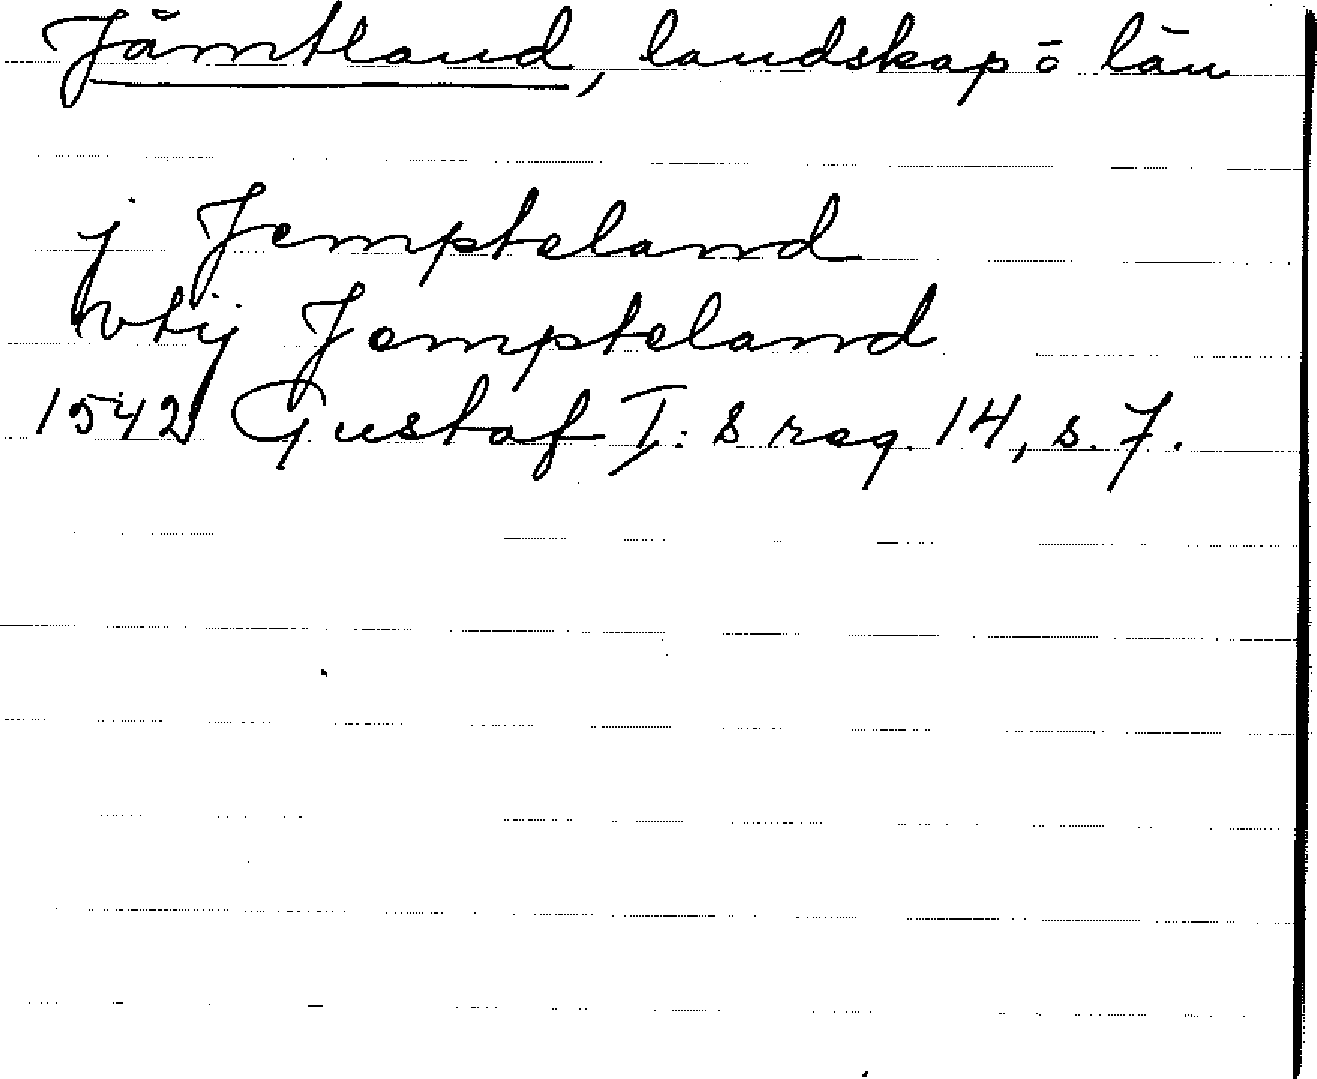 Jämtland, landskap o län
j Jempteland
vtij Jempteland
1542 Gustaf I:s reg. 14, s. 7.